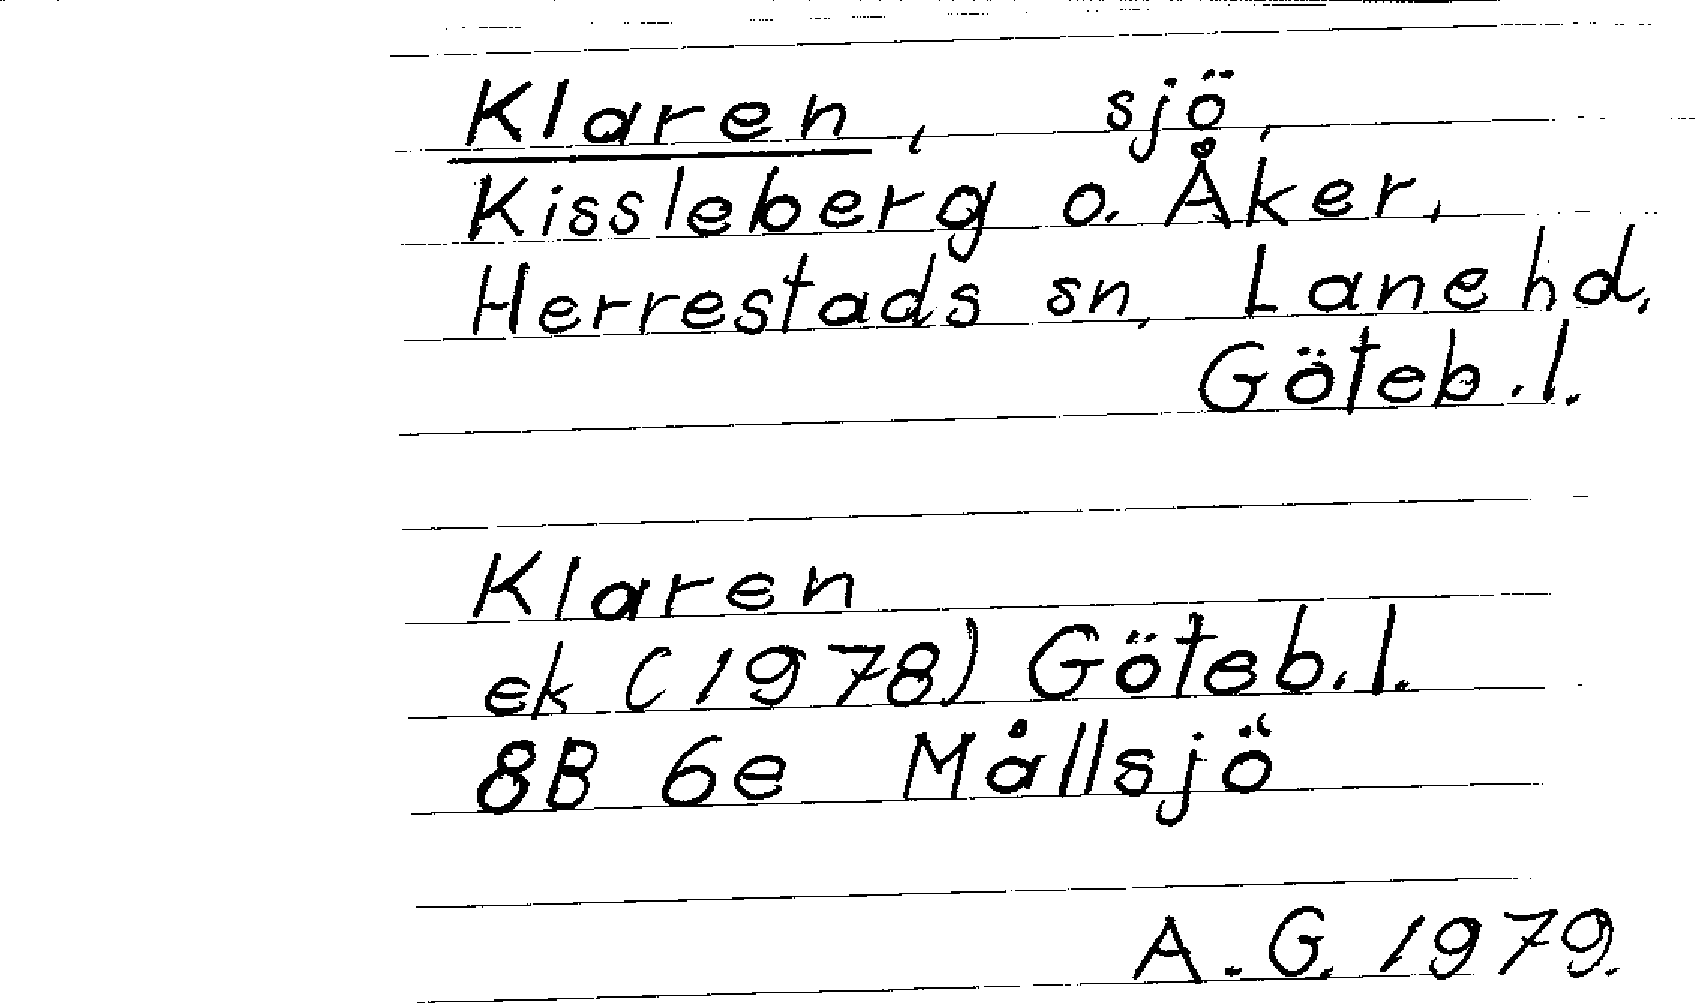 Klaren, sjö,
Kissleberg o. Åker,
Herrestads sn, Lane hd,
Göteb.l.
Klaren
ek (1978) Göteb.l.
8B 6e Mållsjö
A.G. 1979.